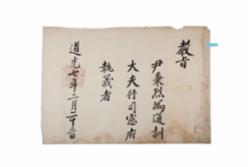 敎旨
尹秉烈爲通訓
大夫行司憲府
執義者
道光七年二月二十日